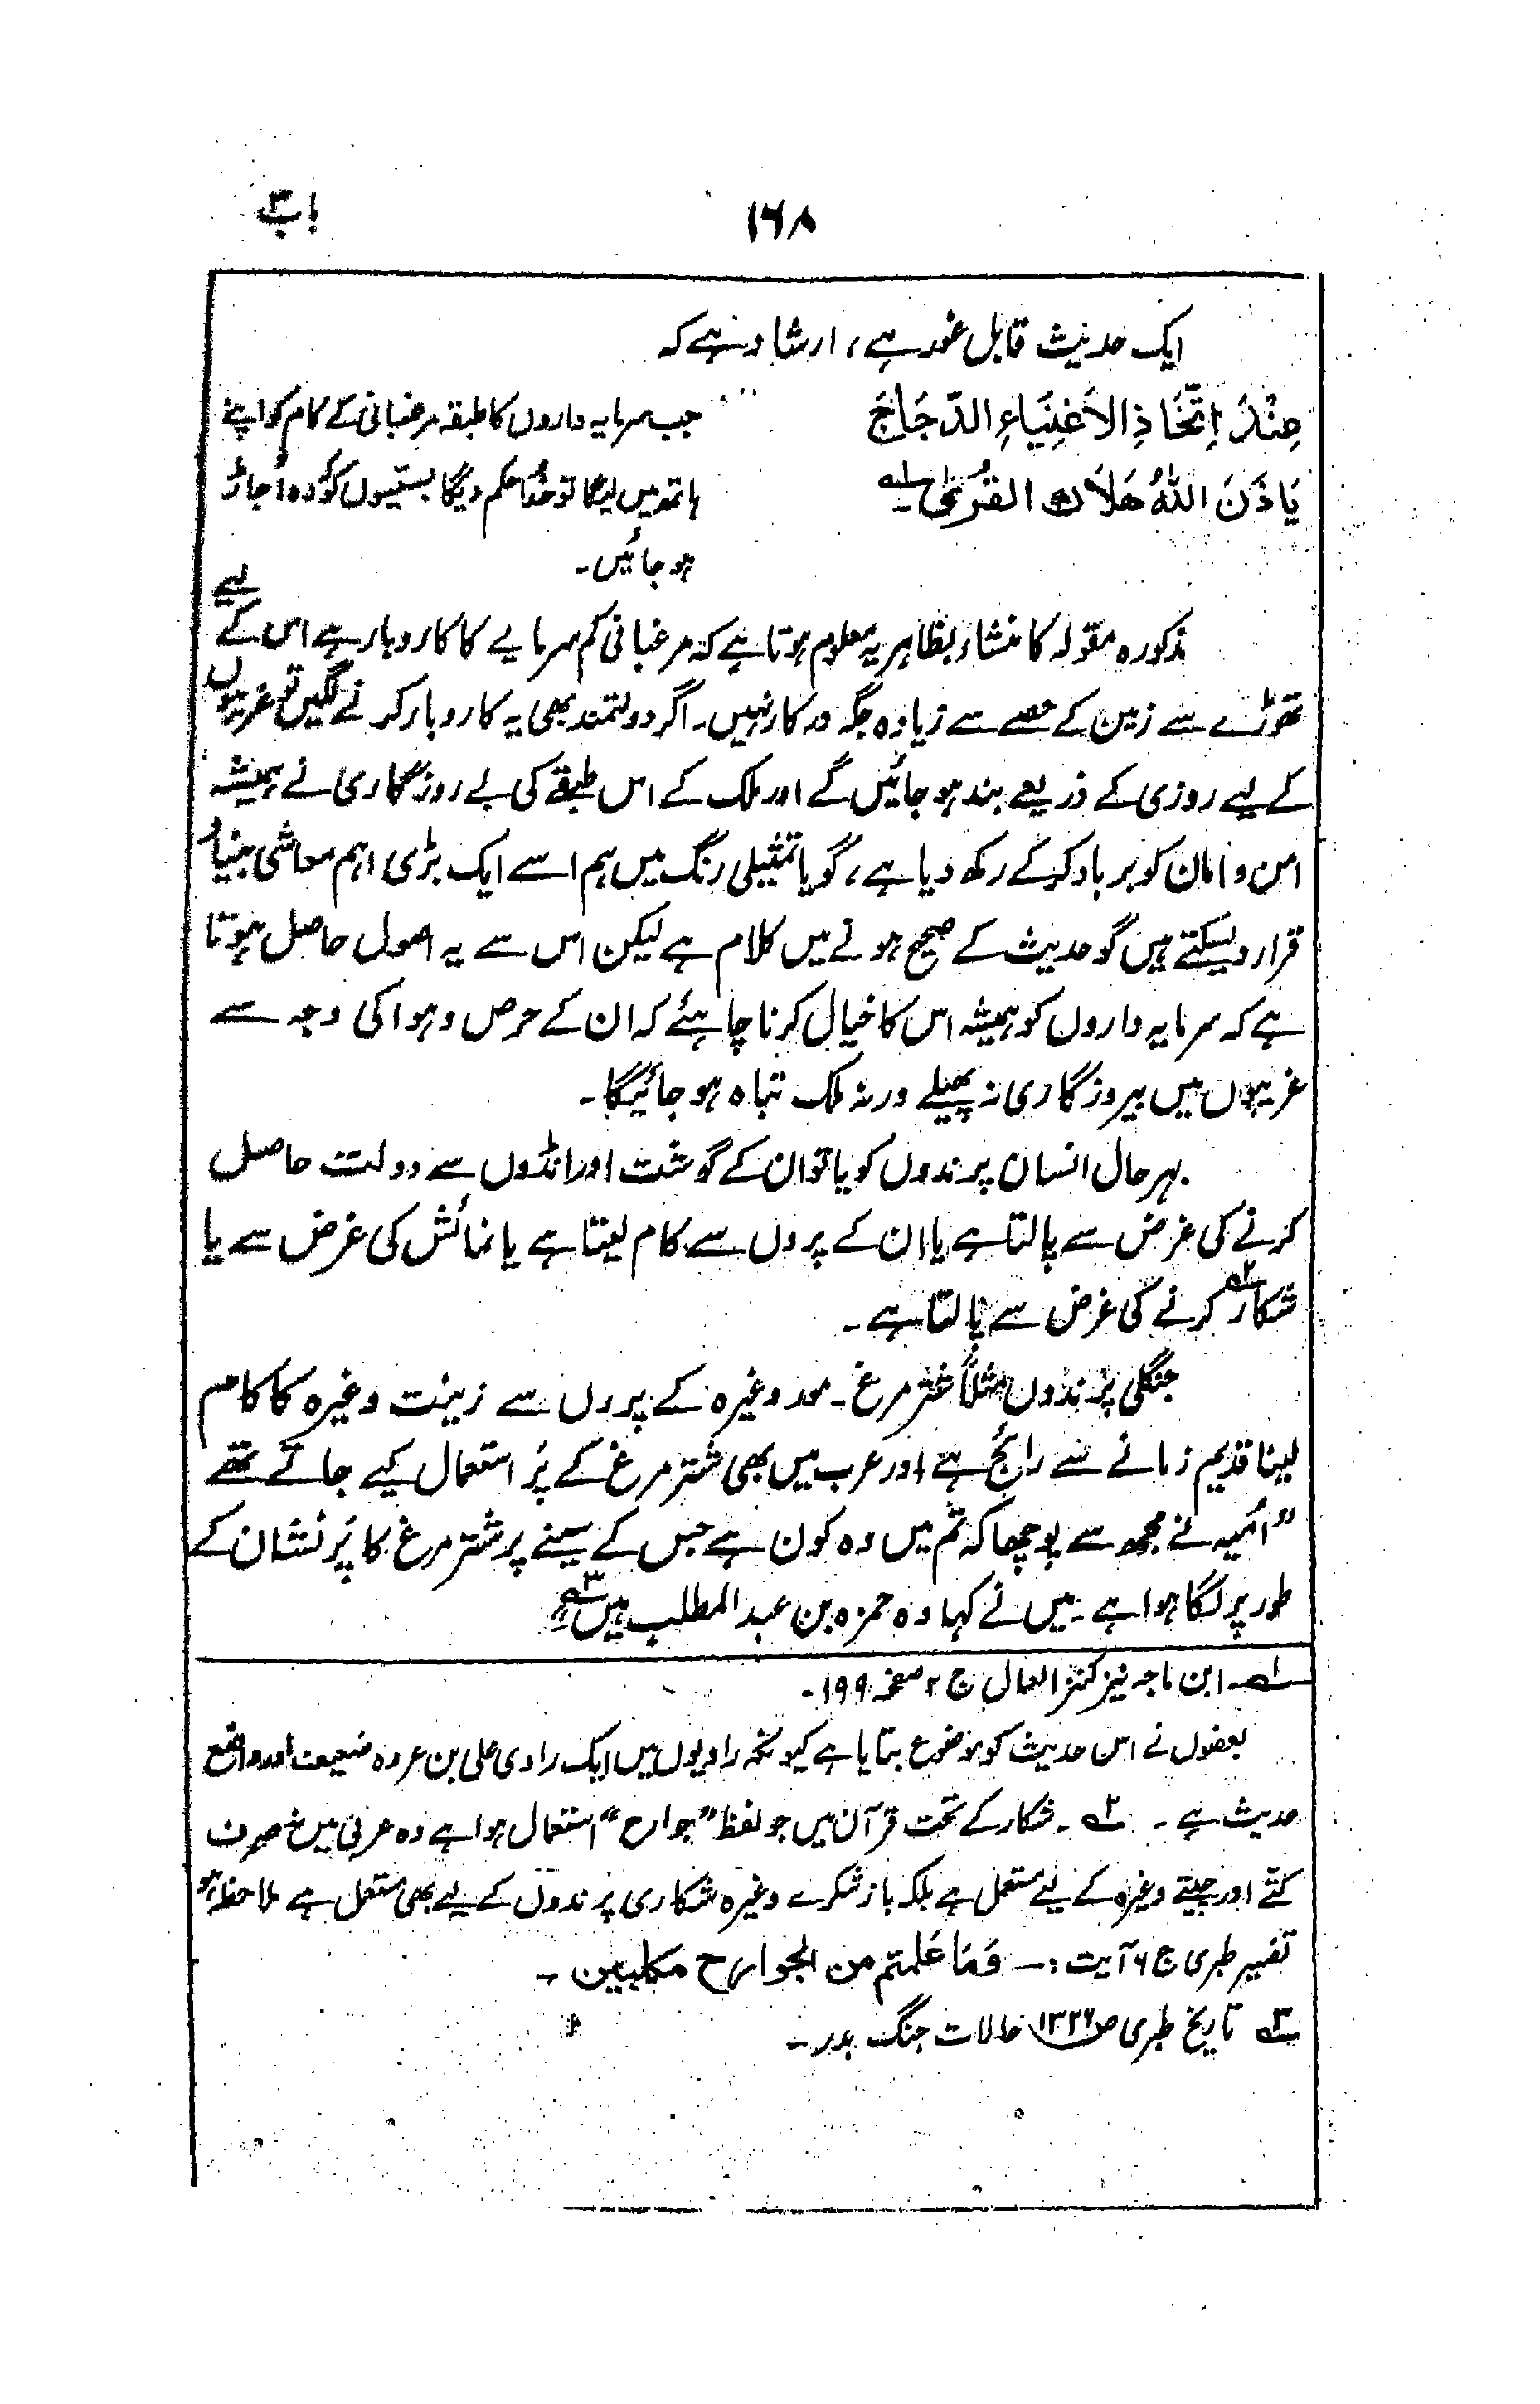 ۱۶۸
باب ۳
ایک حدیث قابل غور ہے، ارشاد ہے کہ
عِنْدَ اِتّخَاذِ الاَغنِیَاءِ الدّجَاجَ
یَاذَنَ اللّٰہُ ھَلَاک القُرٰی۔ ۱؎
جب سرمایہ داروں کا طبقہ مرغبانی کے کام کو اپنے
ہاتھ میں لیگا تو خدا حکم دیگا بستیوں کو کہ وہ اُجاڑ
ہو جائیں۔
مذکورہ مقولہ کا منشاء بظاہر یہ معلوم ہوتا ہے کہ مرغبانی کم سرمایے کا کاروبار ہے اس کے لیے
تھوڑے سے زمین کے حصے سے زیادہ جگہ درکار نہیں۔ اگر دولتمند بھی یہ کاروبار کرنے لگیں تو غریبوں
کے لیے روزی کے ذریعے بند ہو جائیں گے اور ملک کے اس طبقے کی بے روزگاری نے ہمیشہ
امن و امان کو برباد کرکے رکھ دیا ہے، گویا تمثیلی رنگ میں ہم اسے ایک بڑی اہم معاشی بنیاد
قرار دیسکتے ہیں گو حدیث کے صحیح ہونے میں کلام ہے لیکن اس سے یہ اصول حاصل ہوتا
ہے کہ سرمایہ داروں کو ہمیشہ اس کا خیال کرنا چاہئے کہ ان کے حرص و ہوا کی وجہ سے
غریبوں میں بیروزگاری نہ پھیلے ورنہ ملک تباہ ہو جائیگا۔
بہرحال انسان پرندوں کو یا تو ان کے گوشت اور انڈوں سے دولت حاصل
کرنے کی غرض سے پالتا ہے یا ان کے پروں سے کام لیتا ہے یا نمائش کی غرض سے یا
شکار ۲؎ کرنے کی غرض سے پالتا ہے۔
جنگلی پرندوں مثلاً شتر مرغ۔ مور وغیرہ کے پروں سے زینت وغیرہ کا کام
لینا قدیم زمانے سے رائج ہے اور عرب میں بھی شتر مرغ کے پَر استعمال کیے جاتے تھے
”امیہ نے مجھ سے پوچھا کہ تم میں وہ کون ہے جس کے سینے پر شتر مرغ کا پَر نشان کے
طور پر لگا ہوا ہے۔ میں نے کہا وہ حمزہ بن عبدالمطلب ہیں“ ۳؎
۱؎۔ ابن ماجہ نیز کنز العمال ج ۲ صفحہ ۱۹۹۔
بعضوں نے اس حدیث کو موضوع بتایا ہے کیونکہ راویوں میں ایک راوی علی بن عروہ ضعیف اور واضع
حدیث ہے۔ ۲؎۔ شکار کے تحت قرآن میں جو لفظ ”جوارح“ استعمال ہوا ہے وہ عربی میں نہ صرف
کتّے اور چیتے وغیرہ کے لیے مستعمل ہے بلکہ باز شکرے وغیرہ شکاری پرندوں کے لیے بھی مستعمل ہے ملاحظہ ہو
تفسیر طبری ج ۶ آیت :۔ وَمَا عَلمتم من الجوارح مکلبین۔
۳؎ تاریخ طبری ص ۱۳۲۶ حالات جنگ بدر۔